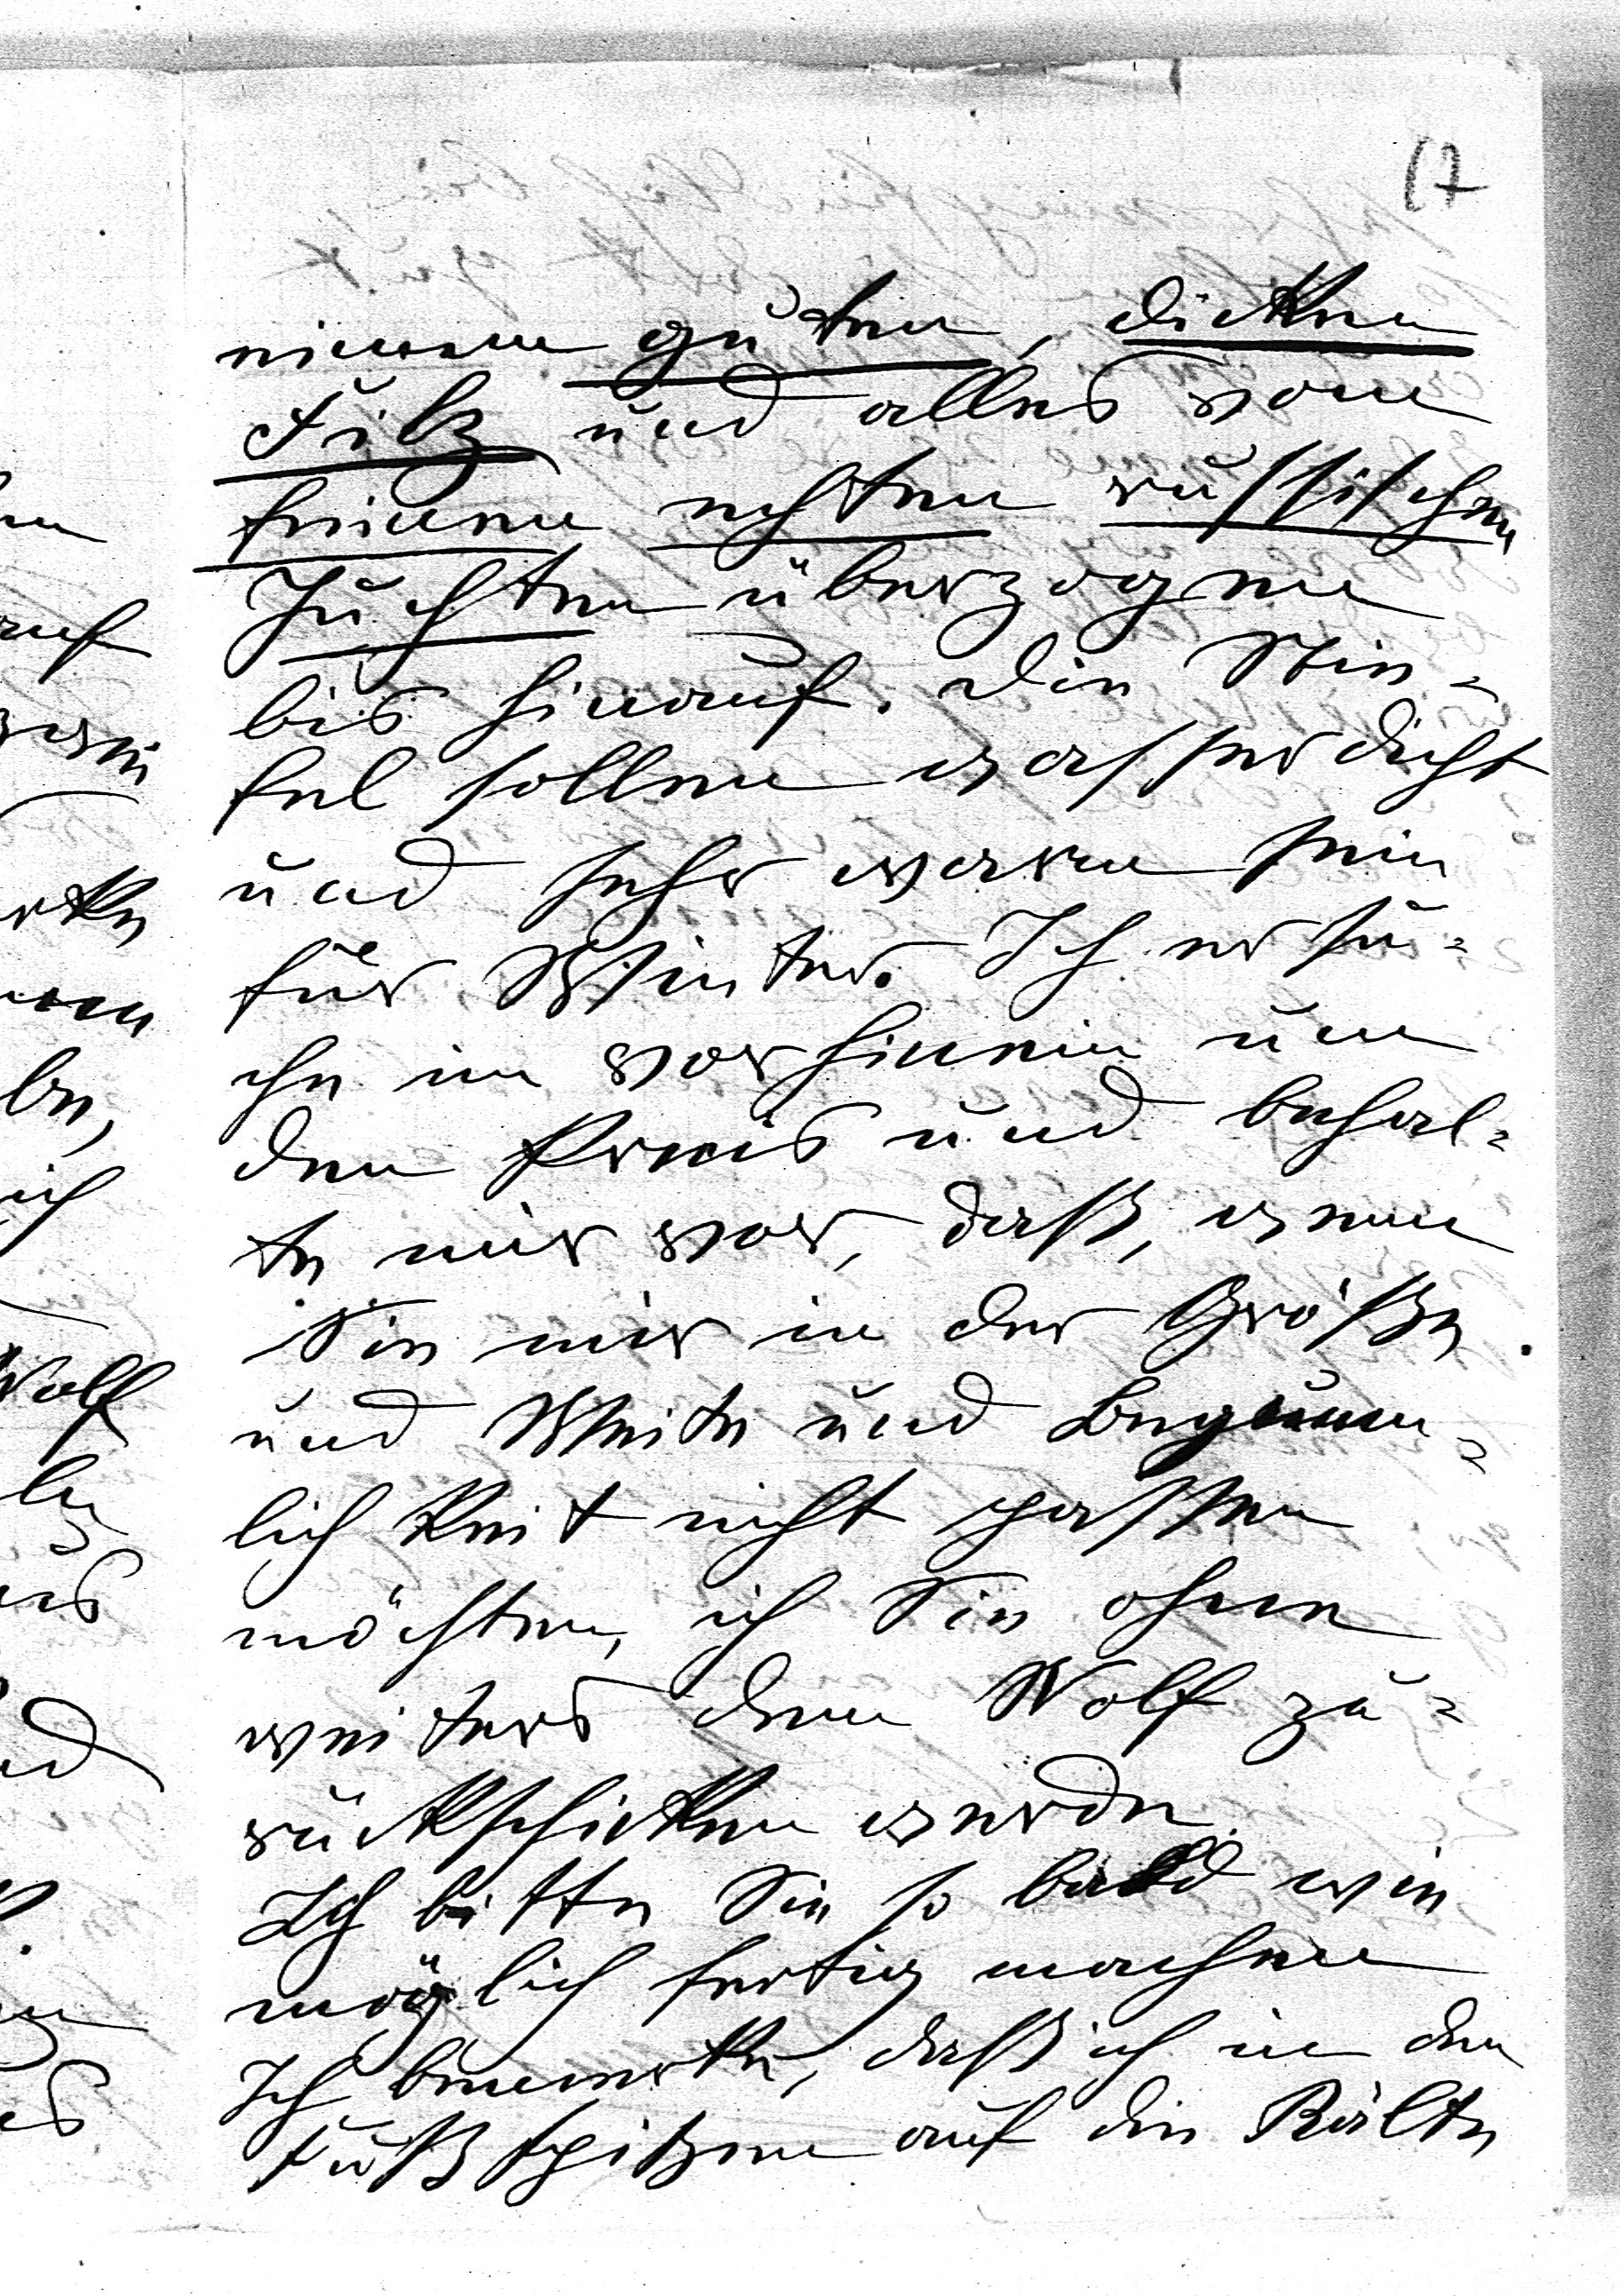 17
einem guten, dicken
Filz und alles von
feinen echten russischen
Juchten überzogen
bis hinauf. Die Stie-
fel sollen wasserdicht
und sehr warm sein
für Winter. Ich ersu-
che im vorhinein um
den Preis und behal-
te mir vor, daß, wenn
Sie mir in der Größe
und Weite und Bequem-
lichkeit nicht passen
möchten, ich Sie ohne
weiters dem Wolf zu-
rückschicken werde.
Ich bitte Sie so bald wie
möglich fertig machen
Ich bemerke, daß ich in den
Fußspitzen auf die Kälte